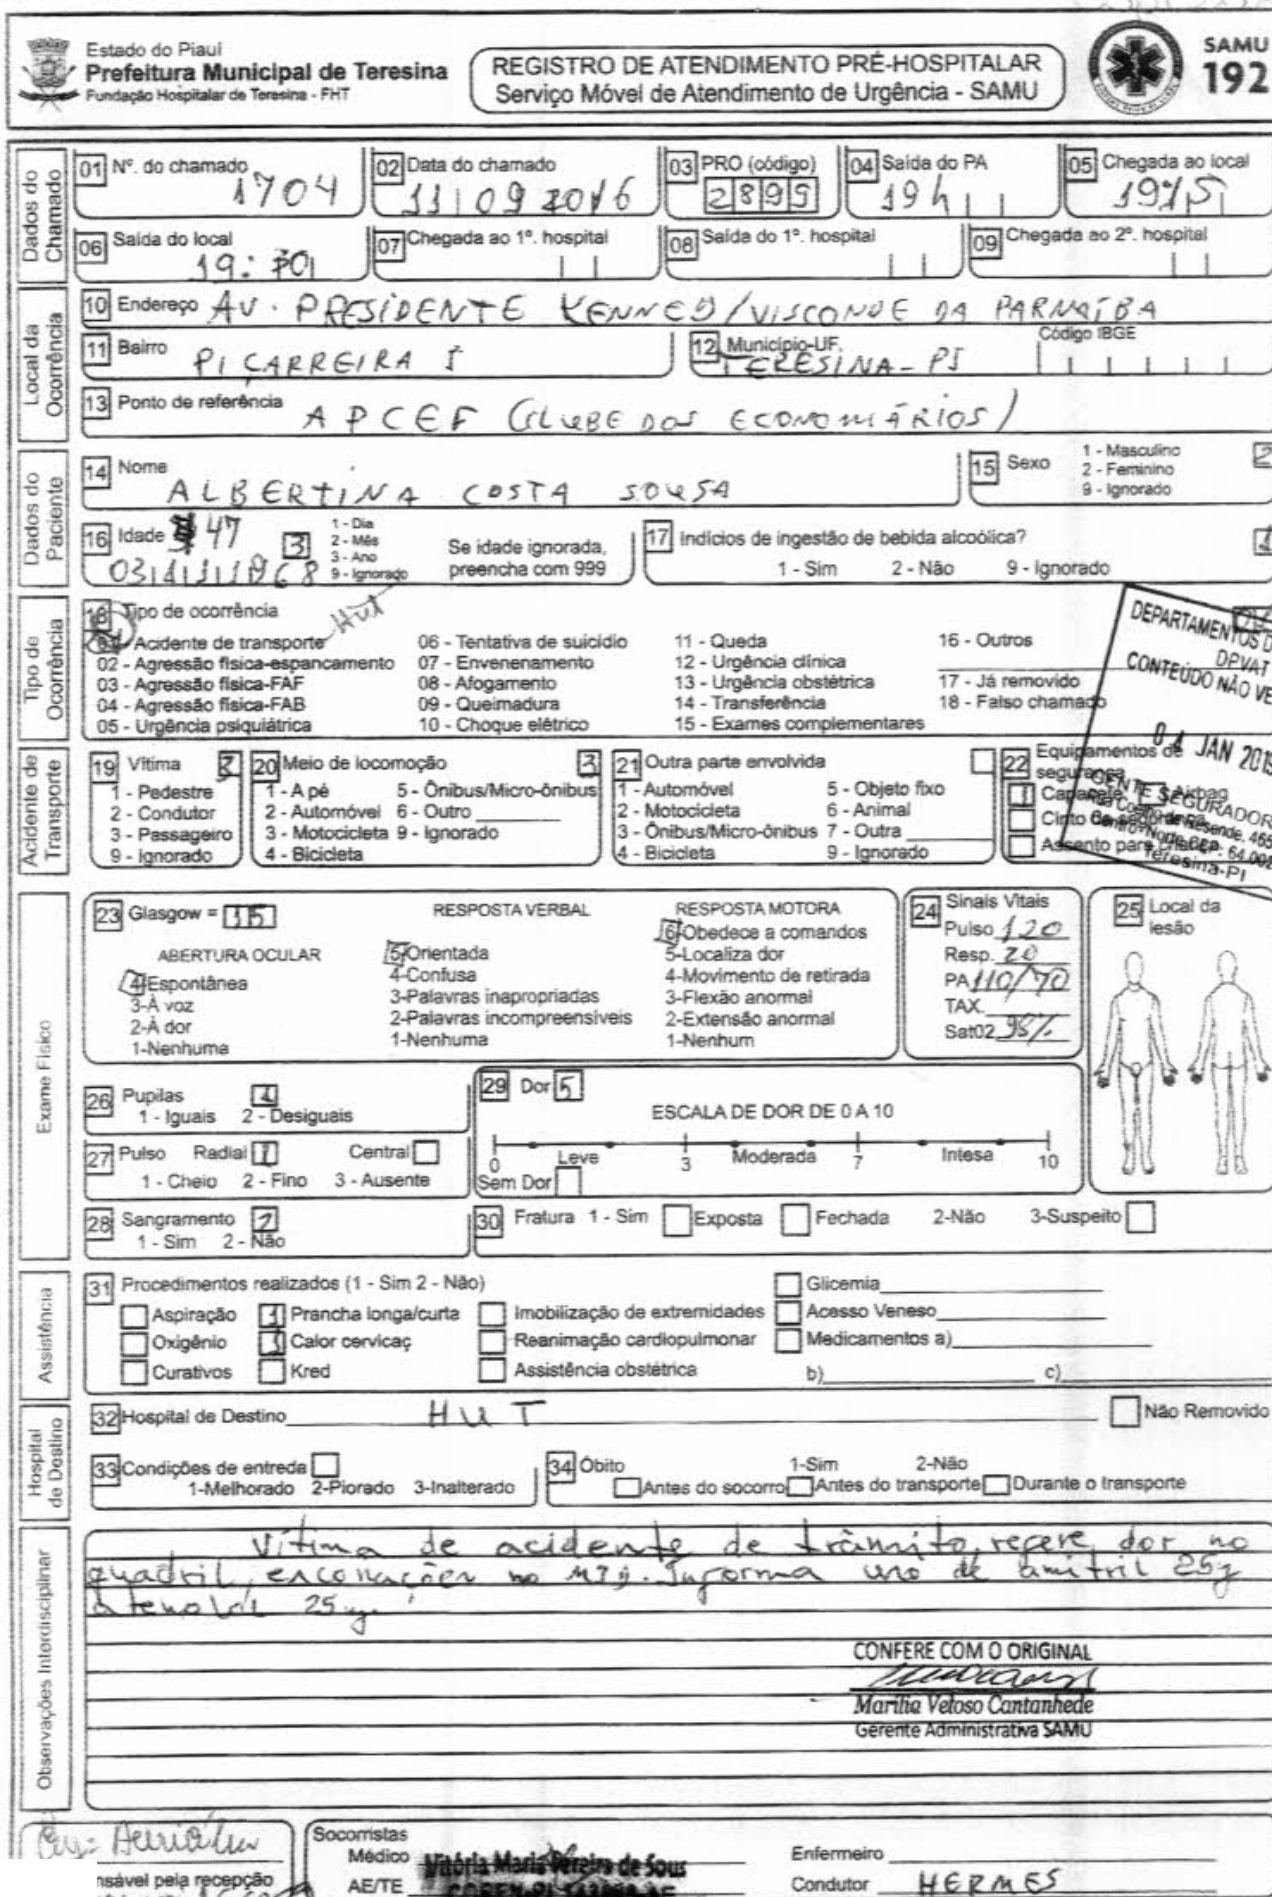 Estado do Piauí
Prefeitura Municipal de Teresina
Fundação Hospitalar de Teresina - FHT
REGISTRO DE ATENDIMENTO PRÉ-HOSPITALAR
Serviço Móvel de Atendimento de Urgência - SAMU
SAMU
192
Dados do Chamado
01 Nº. do chamado 1704
02 Data do chamado 11 09 2016
03 PRO (código) 2899
04 Saída do PA 19h
05 Chegada ao local 1915
06 Saída do local 19:
07 Chegada ao 1º. hospital
08 Saída do 1º. hospital
09 Chegada ao 2º. hospital
Local da Ocorrência
10 Endereço AV. PRESIDENTE KENNED/VISCONDE DA PARNAÍBA
11 Bairro PIÇARREIRA I
12 Município-UF. TERESINA-PI Código IBGE
13 Ponto de referência APCEF (CLUBE DOS ECONOMIÁRIOS)
Dados do Paciente
14 Nome ALBERTINA COSTA SOUSA
15 Sexo 1 - Masculino 2 - Feminino 9 - Ignorado 2
16 Idade 47 3 1 - Dia 2 - Mês 3 - Ano 9 - Ignorado
Se idade ignorada, preencha com 999
17 Indícios de ingestão de bebida alcoólica? 1
1 - Sim 2 - Não 9 - Ignorado
Tipo de Ocorrência
18 Tipo de ocorrência
HUT
01 - Acidente de transporte 06 - Tentativa de suicídio 11 - Queda 16 - Outros
02 - Agressão física-espancamento 07 - Envenenamento 12 - Urgência clínica
03 - Agressão física-FAF 08 - Afogamento 13 - Urgência obstétrica 17 - Já removido
04 - Agressão física-FAB 09 - Queimadura 14 - Transferência 18 - Falso chamado
05 - Urgência psiquiátrica 10 - Choque elétrico 15 - Exames complementares
DEPARTAMENTOS D
DPVAT
CONTEÚDO NÃO VE
04 JAN 2019
GENTE SEGURADOR
Teresina-PI
Acidente de Transporte
19 Vítima 3
1 - Pedestre
2 - Condutor
3 - Passageiro
9 - Ignorado
20 Meio de locomoção 3
1 - A pé 5 - Ônibus/Micro-ônibus
2 - Automóvel 6 - Outro
3 - Motocicleta 9 - Ignorado
4 - Bicicleta
21 Outra parte envolvida
1 - Automóvel 5 - Objeto fixo
2 - Motocicleta 6 - Animal
3 - Ônibus/Micro-ônibus 7 - Outra
4 - Bicicleta 9 - Ignorado
22 Equipamentos de segurança
1 Capacete Airbag
Cinto de
Assento para
Exame Físico
23 Glasgow = 15
ABERTURA OCULAR
4-Espontânea
3-À voz
2-À dor
1-Nenhuma
RESPOSTA VERBAL
5-Orientada
4-Confusa
3-Palavras inapropriadas
2-Palavras incompreensíveis
1-Nenhuma
RESPOSTA MOTORA
6-Obedece a comandos
5-Localiza dor
4-Movimento de retirada
3-Flexão anormal
2-Extensão anormal
1-Nenhum
24 Sinais Vitais
Pulso 120
Resp. 20
PA 110/70
TAX.
Sat02 98%
25 Local da lesão
26 Pupilas 1
1 - Iguais 2 - Desiguais
27 Pulso Radial 1 Central
1 - Cheio 2 - Fino 3 - Ausente
28 Sangramento 2
1 - Sim 2 - Não
29 Dor 5
ESCALA DE DOR DE 0 A 10
0 Leve 3 Moderada 7 Intesa 10
Sem Dor
30 Fratura 1 - Sim Exposta Fechada 2-Não 3-Suspeito
Assistência
31 Procedimentos realizados (1 - Sim 2 - Não) Glicemia
Aspiração 1 Prancha longa/curta Imobilização de extremidades Acesso Veneso
Oxigênio 1 Calor cervicaç Reanimação cardiopulmonar Medicamentos a)
Curativos Kred Assistência obstétrica b) c)
Hospital de Destino
32 Hospital de Destino HUT Não Removido
33 Condições de entreda
1-Melhorado 2-Piorado 3-Inalterado
34 Óbito 1-Sim 2-Não
Antes do socorro Antes do transporte Durante o transporte
Observações Interdisciplinar
Vítima de acidente de trânsito, refere dor no
quadril, escoriações no . Informa uso de amitril 25g
atenolol 25
CONFERE COM O ORIGINAL
Marília Veloso Cantanhede
Gerente Administrativa SAMU
nsável pela recepção
Socorristas
Médico
Vitória Maria Pereira de Sous
AE/TE
Enfermeiro
Condutor HERMES